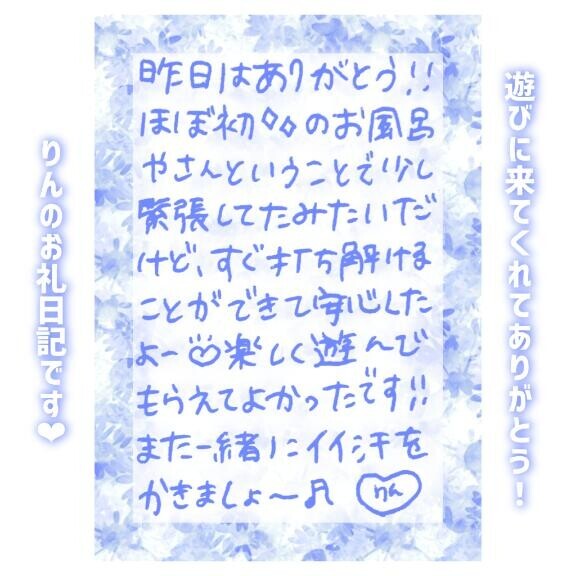 遊びに来てくれてありがとう！
昨日はありがとう!!
ほぼ初◇◇のお風呂
やさんということで少し
緊張してたみたいだ
けど、すぐ打ち解ける
ことができて安心した
よー♡楽しく遊んで
もらえてよかったです!!
また一緒にイイ汗を
かきましょ〜♬ りん
りんのお礼日記です❤